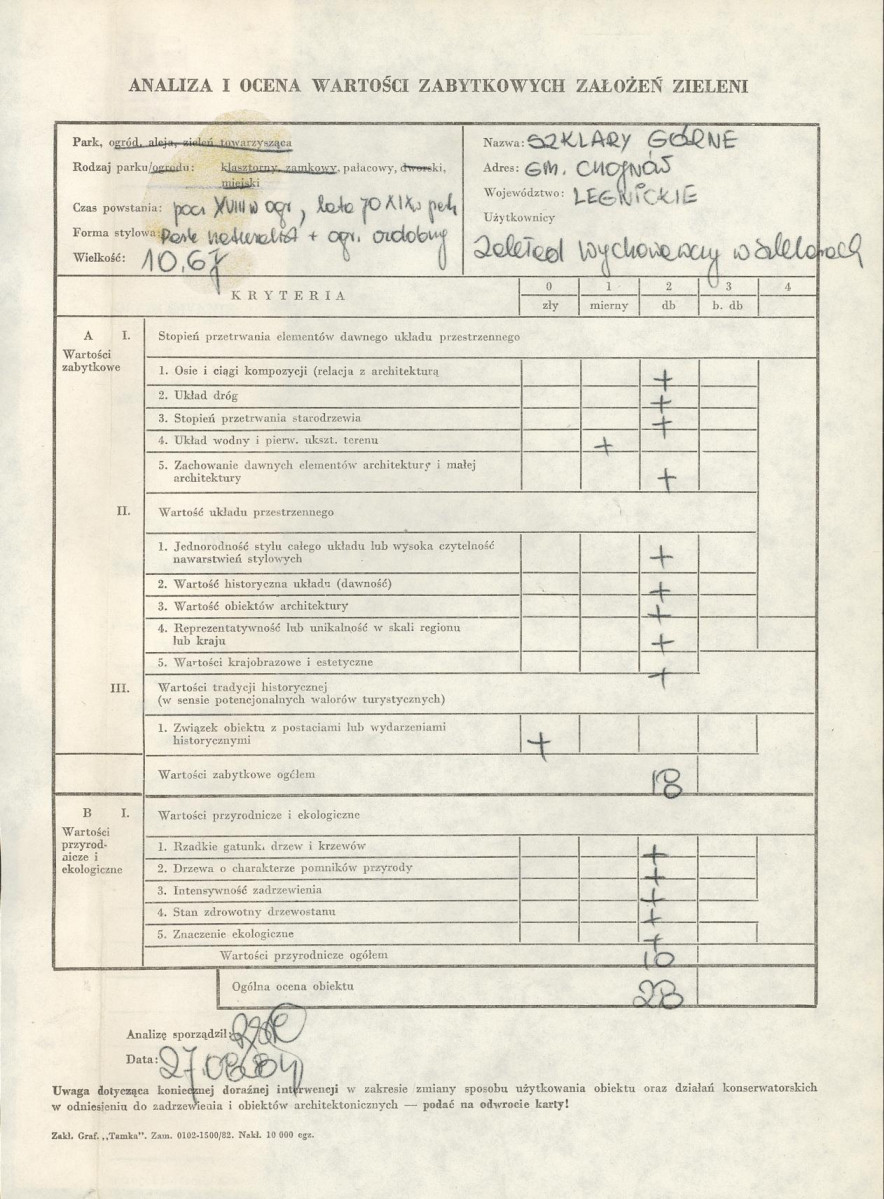 ANALIZA I OCENA WARTOŚCI ZABYTKOWYCH ZAŁOŻEŃ ZIELENI
Park, ogród, aleja, zieleń towarzysząca
Rodzaj parku/ogrodu: klasztorny, zamkowy, pałacowy, dworski,
miejski
Czas powstania: pocz XVIII w ogr, lata 70 XIX w park
Forma stylowa: Park naturalist + ogr. ozdobny
Wielkość: 10,67
Nazwa: SZKLARY GÓRNE
Adres: GM. CHOJNÓW
Województwo: LEGNICKIE
Użytkownicy
Zakład Wychowawczy w Szklarach
KRYTERIA
0 1 2 3 4
zły mierny db b. db
A I. Stopień przetrwania elementów dawnego układu przestrzennego
Wartości
zabytkowe
1. Osie i ciągi kompozycji (relacja z architekturą +
2. Układ dróg +
3. Stopień przetrwania starodrzewia +
4. Układ wodny i pierw. ukszt. terenu +
5. Zachowanie dawnych elementów architektury i małej
architektury +
II. Wartość układu przestrzennego
1. Jednorodność stylu całego układu lub wysoka czytelność
nawarstwień stylowych +
2. Wartość historyczna układu (dawność) +
3. Wartość obiektów architektury +
4. Reprezentatywność lub unikalność w skali regionu
lub kraju +
5. Wartości krajobrazowe i estetyczne +
III. Wartości tradycji historycznej
(w sensie potencjonalnych walorów turystycznych)
1. Związek obiektu z postaciami lub wydarzeniami
historycznymi +
Wartości zabytkowe ogółem 18
B I. Wartości przyrodnicze i ekologiczne
Wartości
przyrod-
nicze i
ekologiczne
1. Rzadkie gatunki drzew i krzewów +
2. Drzewa o charakterze pomników przyrody +
3. Intensywność zadrzewienia +
4. Stan zdrowotny drzewostanu +
5. Znaczenie ekologiczne +
Wartości przyrodnicze ogółem 10
Ogólna ocena obiektu 28
Analizę sporządził:
Data: 27.08.84
Uwaga dotycząca koniecznej doraźnej interwencji w zakresie zmiany sposobu użytkowania obiektu oraz działań konserwatorskich
w odniesieniu do zadrzewienia i obiektów architektonicznych — podać na odwrocie karty!
Zakł. Graf. „Tamka". Zam. 0102-1500/82. Nakł. 10 000 egz.